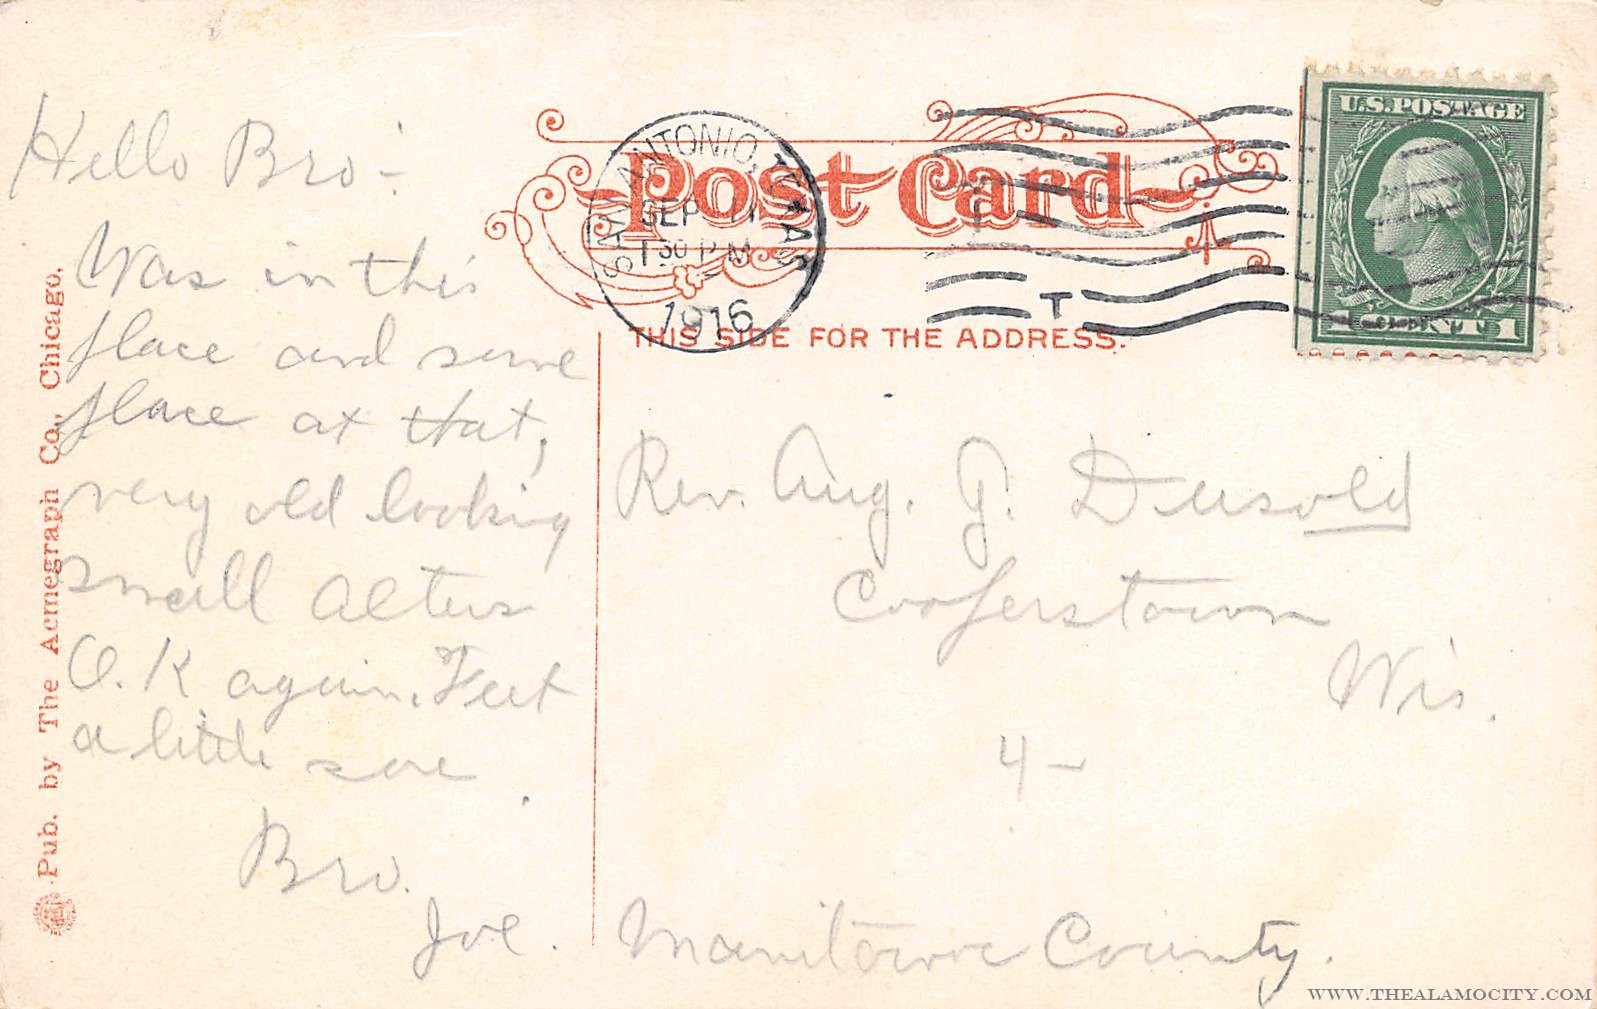 Hello Bro -
Was in this
place and some
place at that,
very old looking
small alters
O.K again. Feet
a little sore
Bro.
Joe.
Pub. by The Acmegraph Co., Chicago.
Post Card
SAN ANTONIO, TEXAS
SEP 11
1 30 P M
1916
T
THIS SIDE FOR THE ADDRESS.
U.S. POSTAGE
1 CENT 1
Rev. Aug. J. Dusold
Cooperstown
Wis.
4 -
Manitowoc County.
WWW.THEALAMOCITY.COM